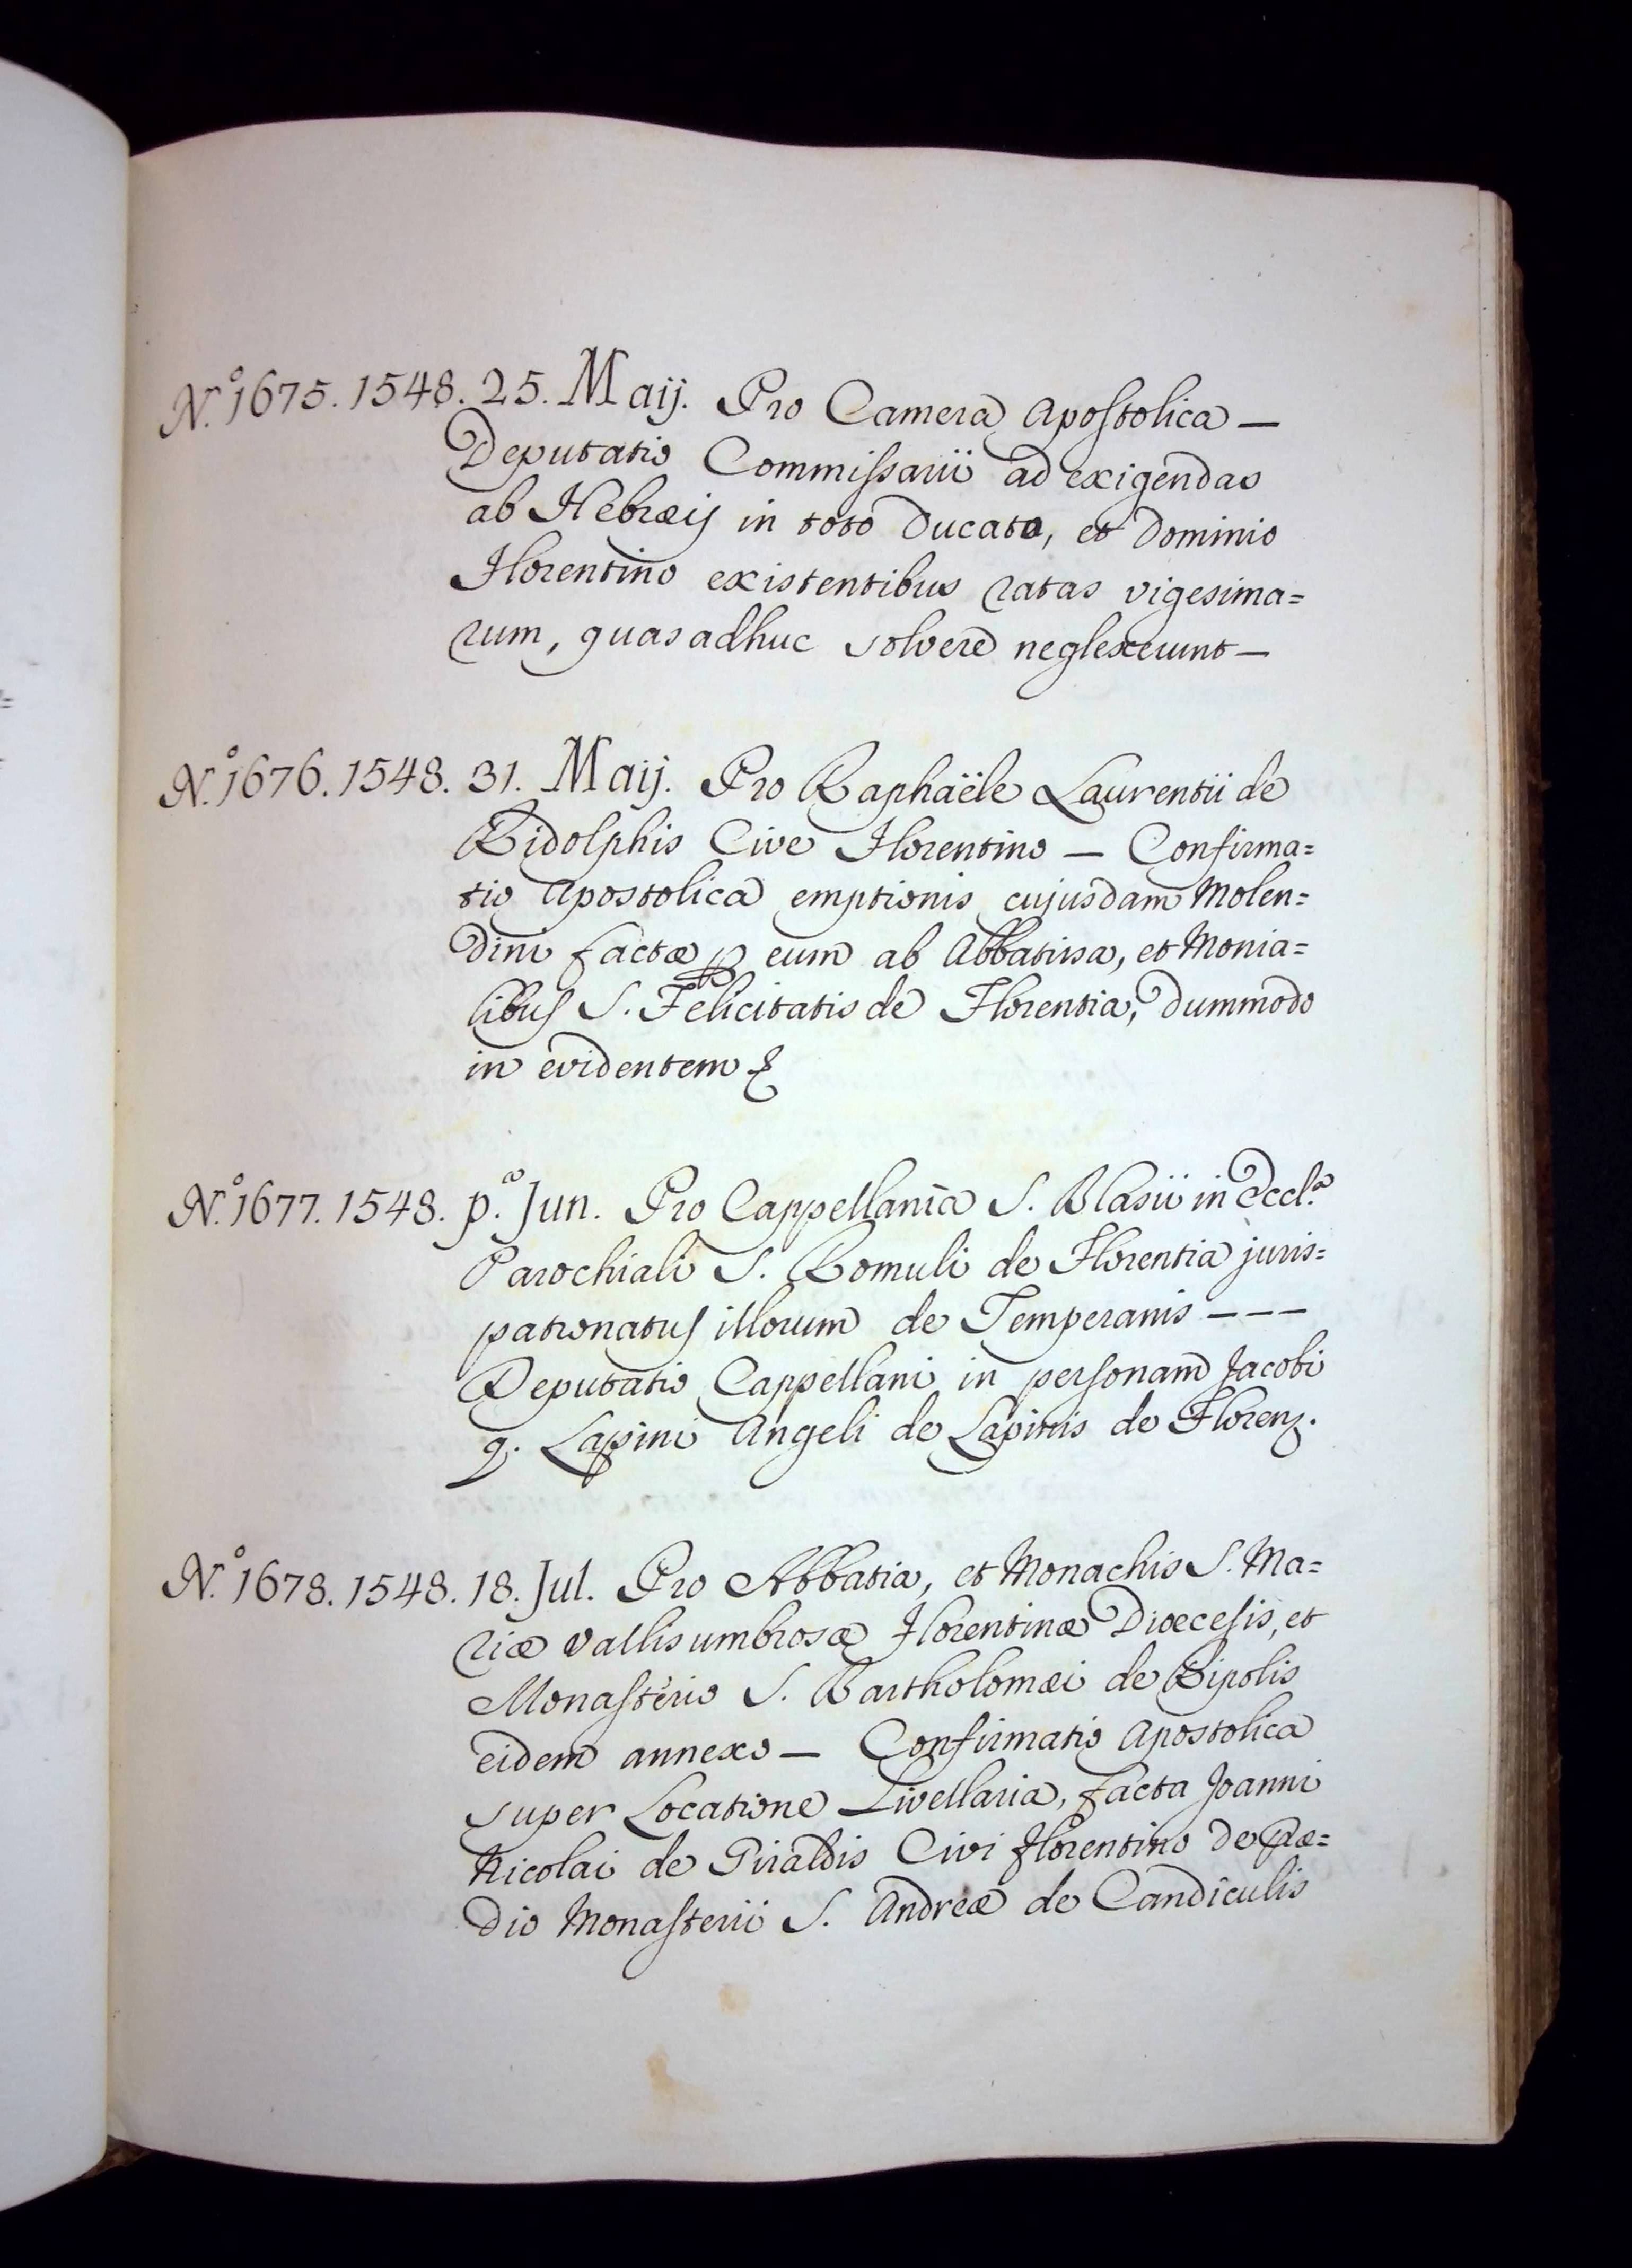 N.º 1675. 1548. 25. Maij. Pro Camera Apostolica —
Deputatio Commissarii ad exigendas
ab Hebræis in toto Ducato, et Dominio
Florentino existentibus ratas vigesima=
rum, quas adhuc solvere neglexerunt —
N.º 1676. 1548. 31. Maij. Pro Raphaële Laurentii de
Ridolphis Cive Florentino — Confirma=
tio Apostolica emptionis cujusdam Molen=
dini factæ p eum ab Abbatissa, et Monia=
libus S. Felicitatis de Florentia, dummodo
in evidentem &
N.º 1677. 1548. p.ª Jun. Pro Cappellania S. Blasii in Eccl.ª
Parochiali S. Romuli de Florentia juris=
patronatus illorum de Temperanis - - -
Deputatio Cappellani in personam Jacobi
q. Lapini Angeli de Lapinis de Florenz.
N.º 1678. 1548. 18. Jul. Pro Abbatia, et Monachis S. Ma=
riæ Vallisumbrosæ Florentinæ Dioecesis, et
Monasterio S. Bartholomæi de Ripolis
eidem annexo — Confirmatio Apostolica
super Locatione Livellaria, facta Joanni
Nicolai de Giraldis Civi Florentino de Præ=
dio Monasterii S. Andreæ de Candiculis